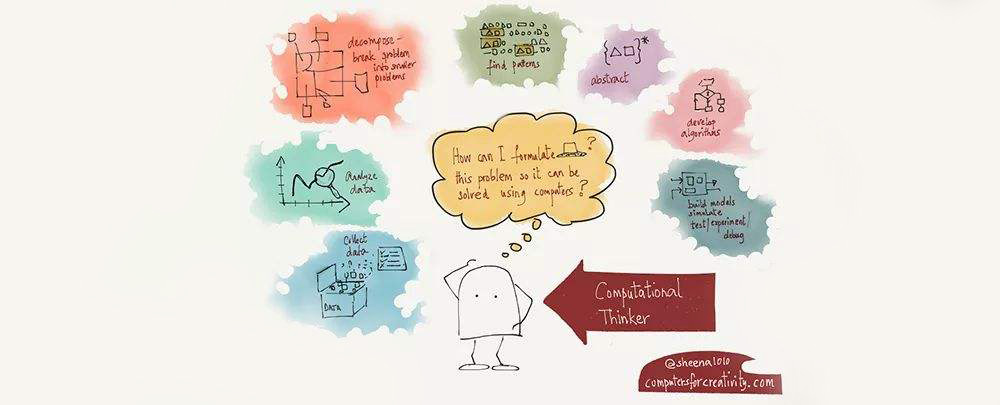 decompose-
break problem
into smaller
problems
find patterns
{△□}*
abstract
develop
algorithms
Analyze
data
How can I formulate ?
this problem so it can be
solved using computers?
build models
simulate
test/experiment/
debug
Collect
data
DATA
Computational
Thinker
@sheena1010
computersforcreativity.com